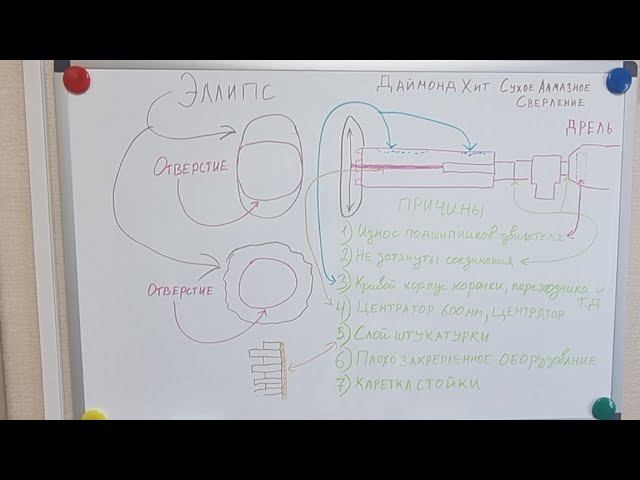 Эллипс
Даймонд Хит Сухое Алмазное
Сверление
Дрель
Отверстие
Отверстие
Причины
1) Износ подшипников двигателя
2) Не затянуты соединения
3) Кривой корпус коронки, переходника и
т.д
4) Центратор 600мм, Центратор
5) Слой штукатурки
6) Плохо закрепленное оборудование
7) Каретка стойки